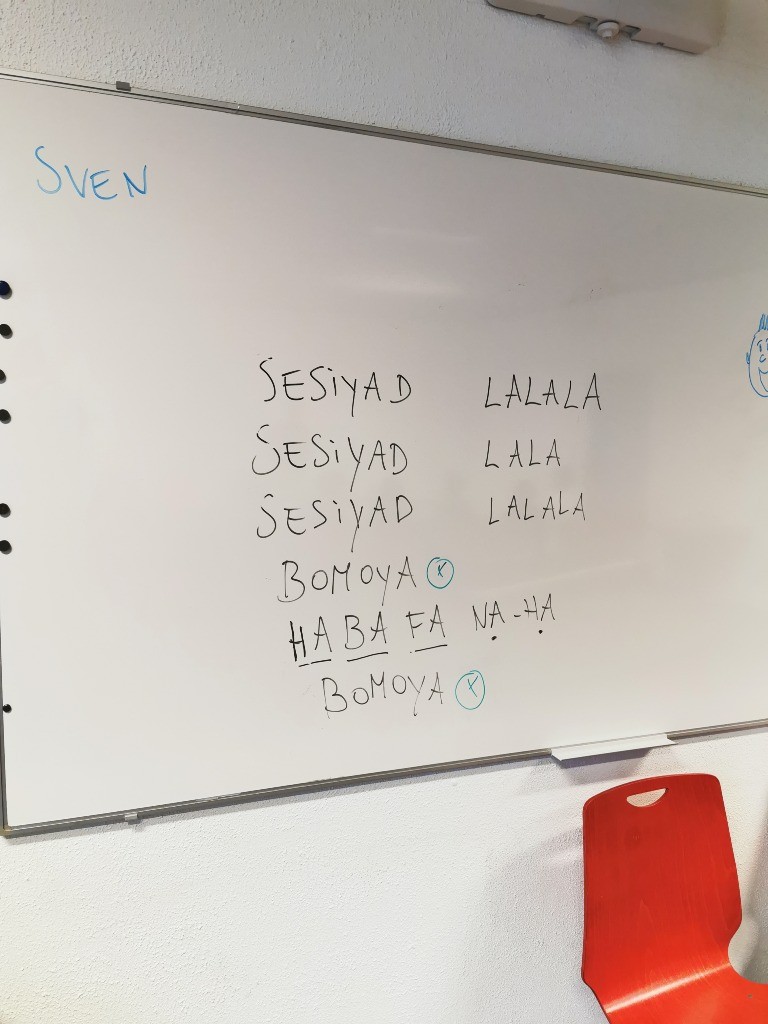 SVEN
SESiYAD LALALA
SESiYAD LALA
SESiYAD LALALA
BOMOYA x
HA BA FA NA-HA
BOMOYA x